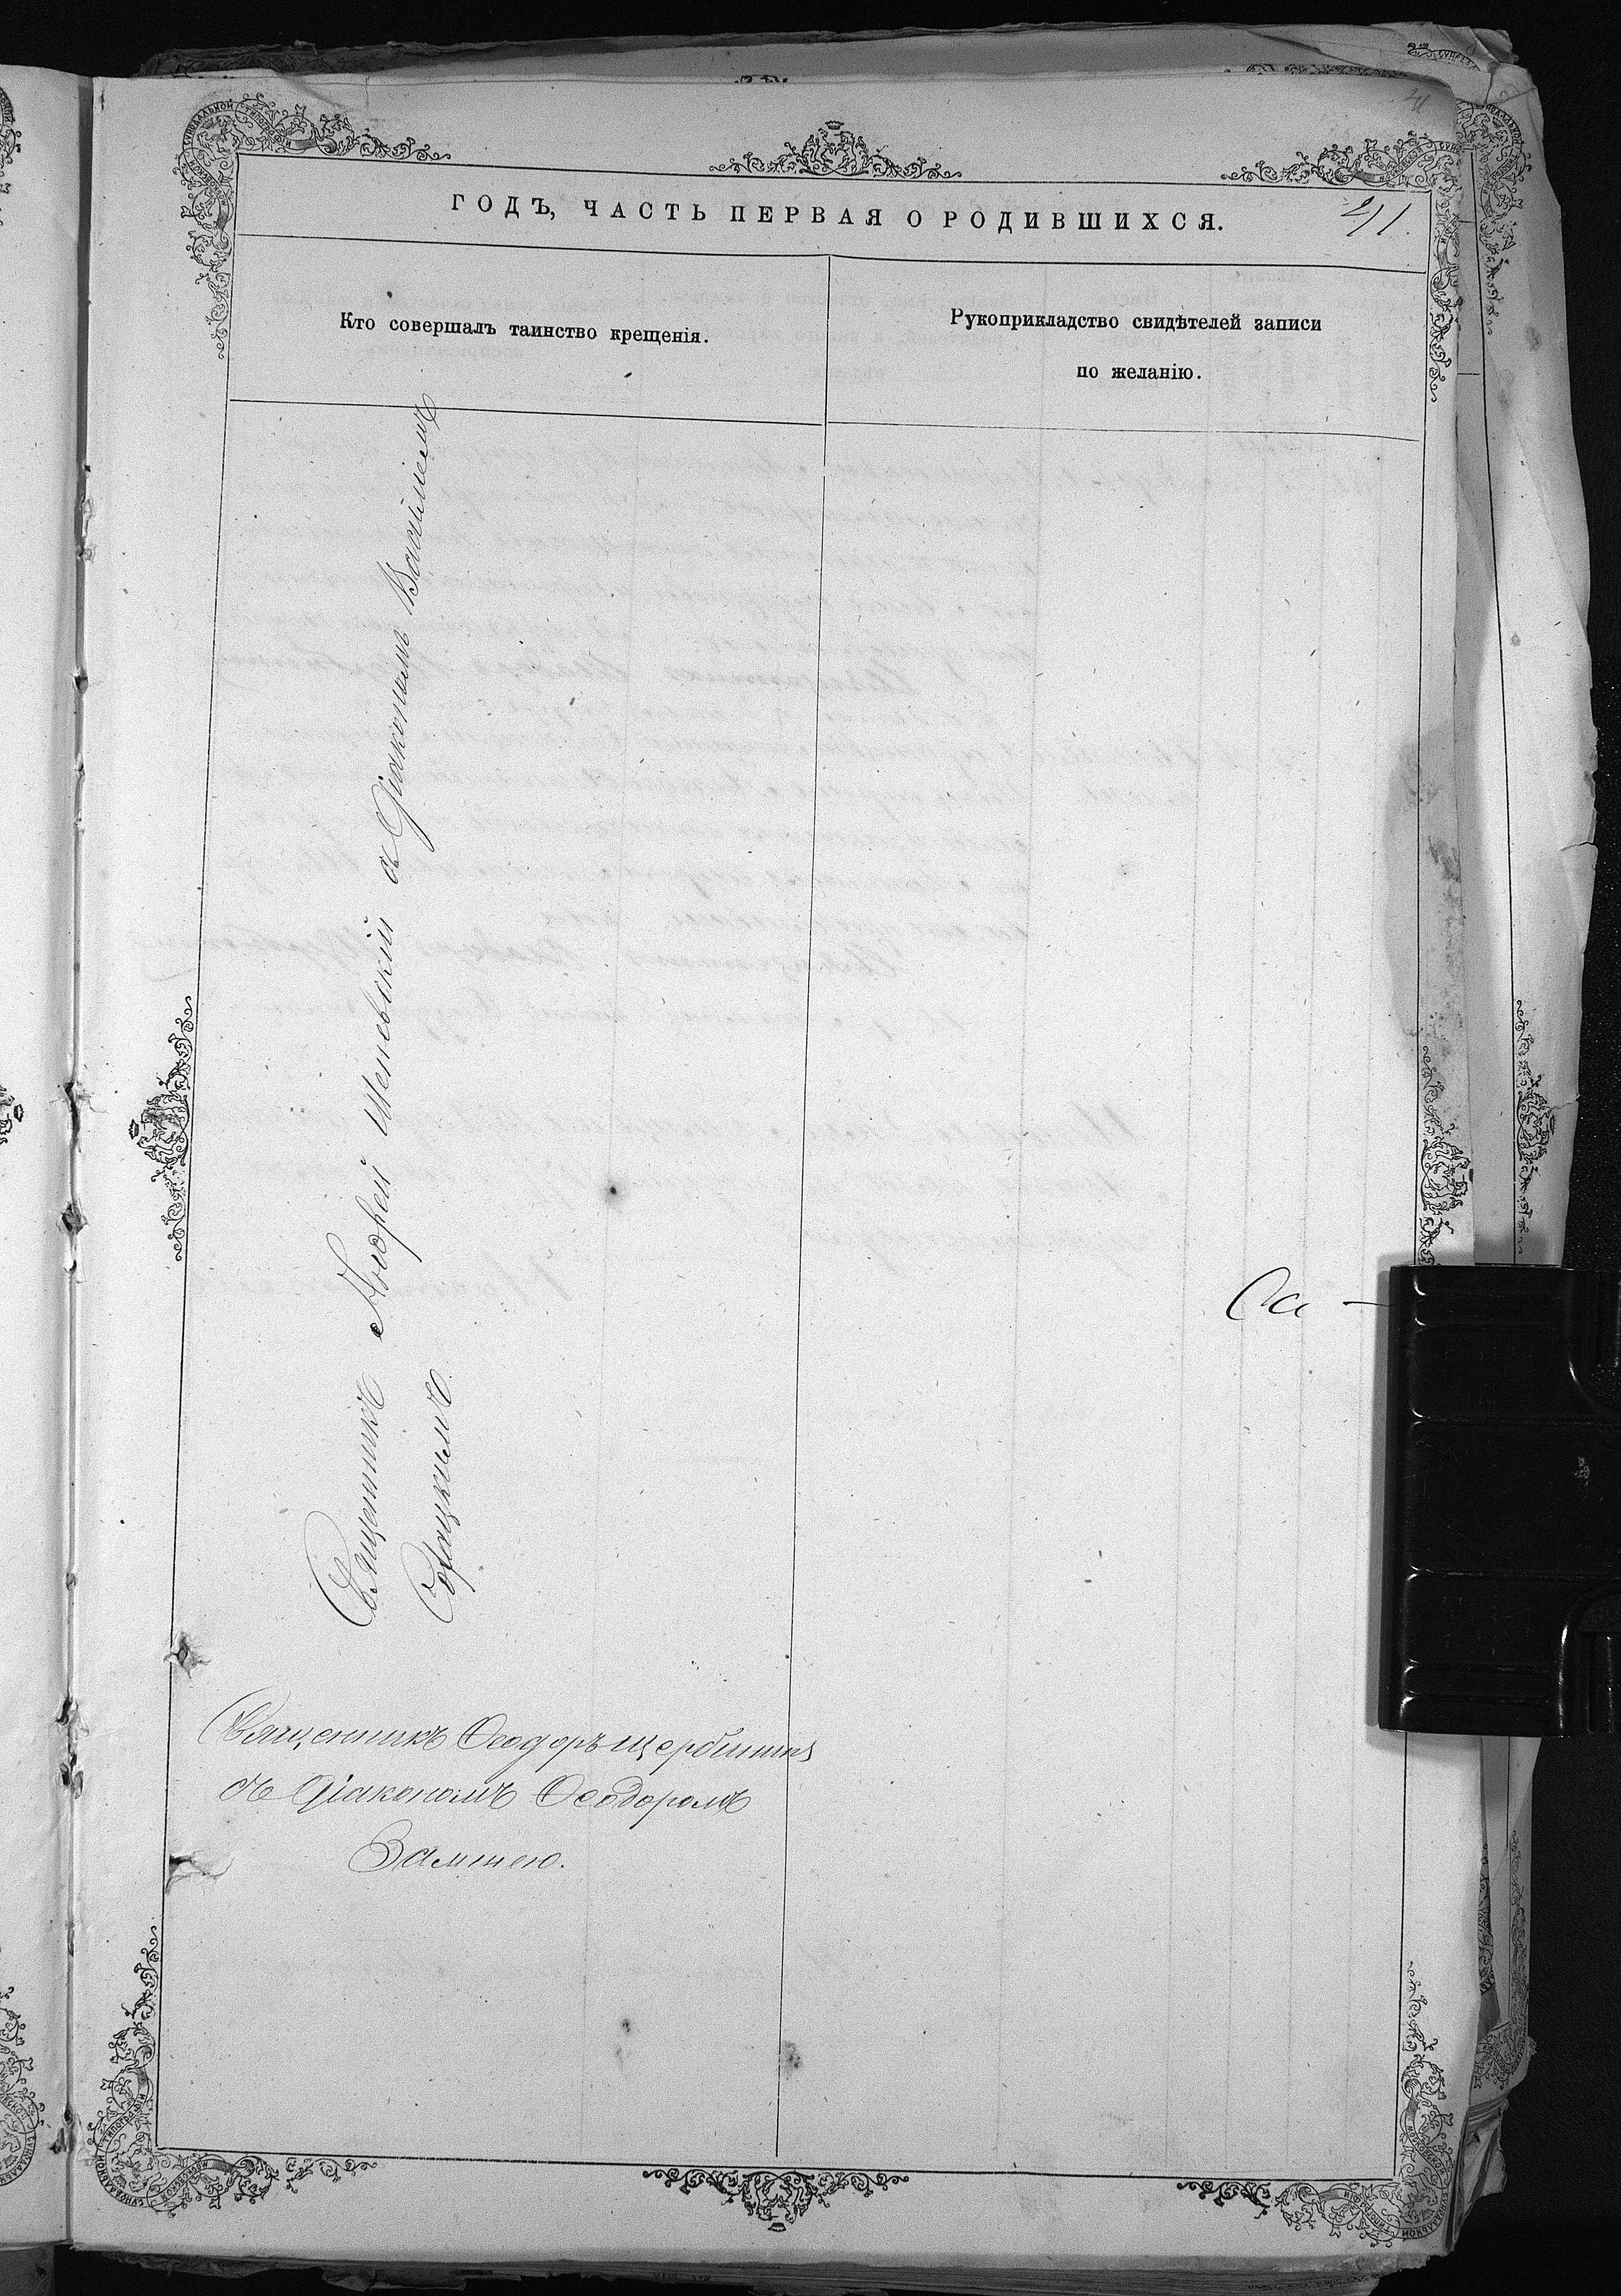 ГОДЪ, ЧАСТЬ ПЕРВАЯ О РОДИВШИХСЯ.
41.
Кто совершалъ таинство крещенія.
Рукоприкладство свидѣтелей записи
по желанію.
Священникъ Андрей Шеневскій съ Діакономъ Василіемъ
Священникъ Ѳеодоръ Щербина
съ Діакономъ Ѳеодоромъ
Замшею.